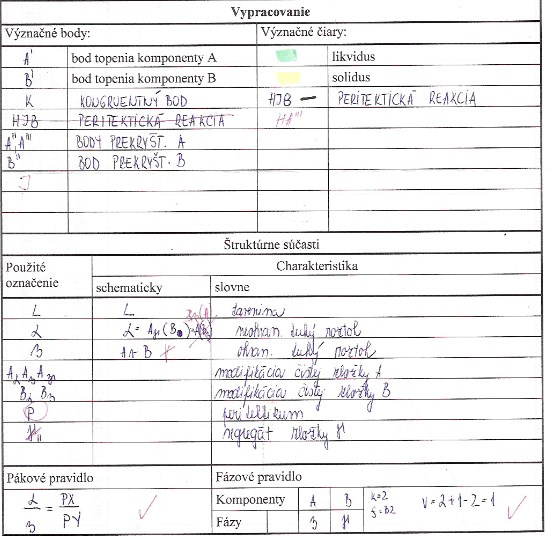 Vypracovanie
Význačné body: Význačné čiary:
A' bod topenia komponenty A likvidus
B' bod topenia komponenty B solidus
K KONGRUENTNÝ BOD HJB — PERITEKTICKÁ REAKCIA
HJB PERITEKTICKÁ REAKCIA HA'''
A'', A''' BODY PREKRYŠT. A
B'' BOD PREKRYŠT. B
J
Štruktúrne súčasti
Použité označenie Charakteristika
schematicky slovne
L L tavenina
α neohran. tuhý roztok
ohran. tuhý roztok
modifikácia čistej zložky A
modifikácia čistej zložky B
P peritektikum
segregát zložky
Pákové pravidlo Fázové pravidlo
= PX / PY
Komponenty A B K=2 V=2+1-2=1
Fázy